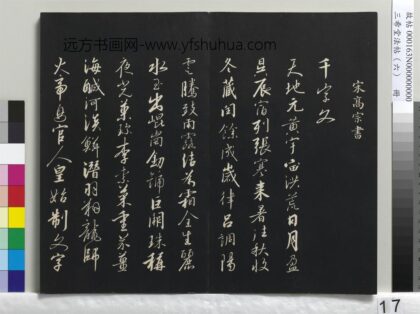 远方书画网-www.yfshuhua.com
故帖 000163N000000000
三希堂法帖(六) 冊
宋高宗書
千字文
天地元黃宇宙洪荒日月盈
昃辰宿列張寒来暑往秋收
冬藏閏餘成歲律呂調陽
雲騰致雨露結為霜金生麗
水玉出崐崗劒號巨闕珠稱
夜光菓珍李柰菜重芥薑
海鹹河淡鱗潛羽翔龍師
火帝鳥官人皇始制文字
17